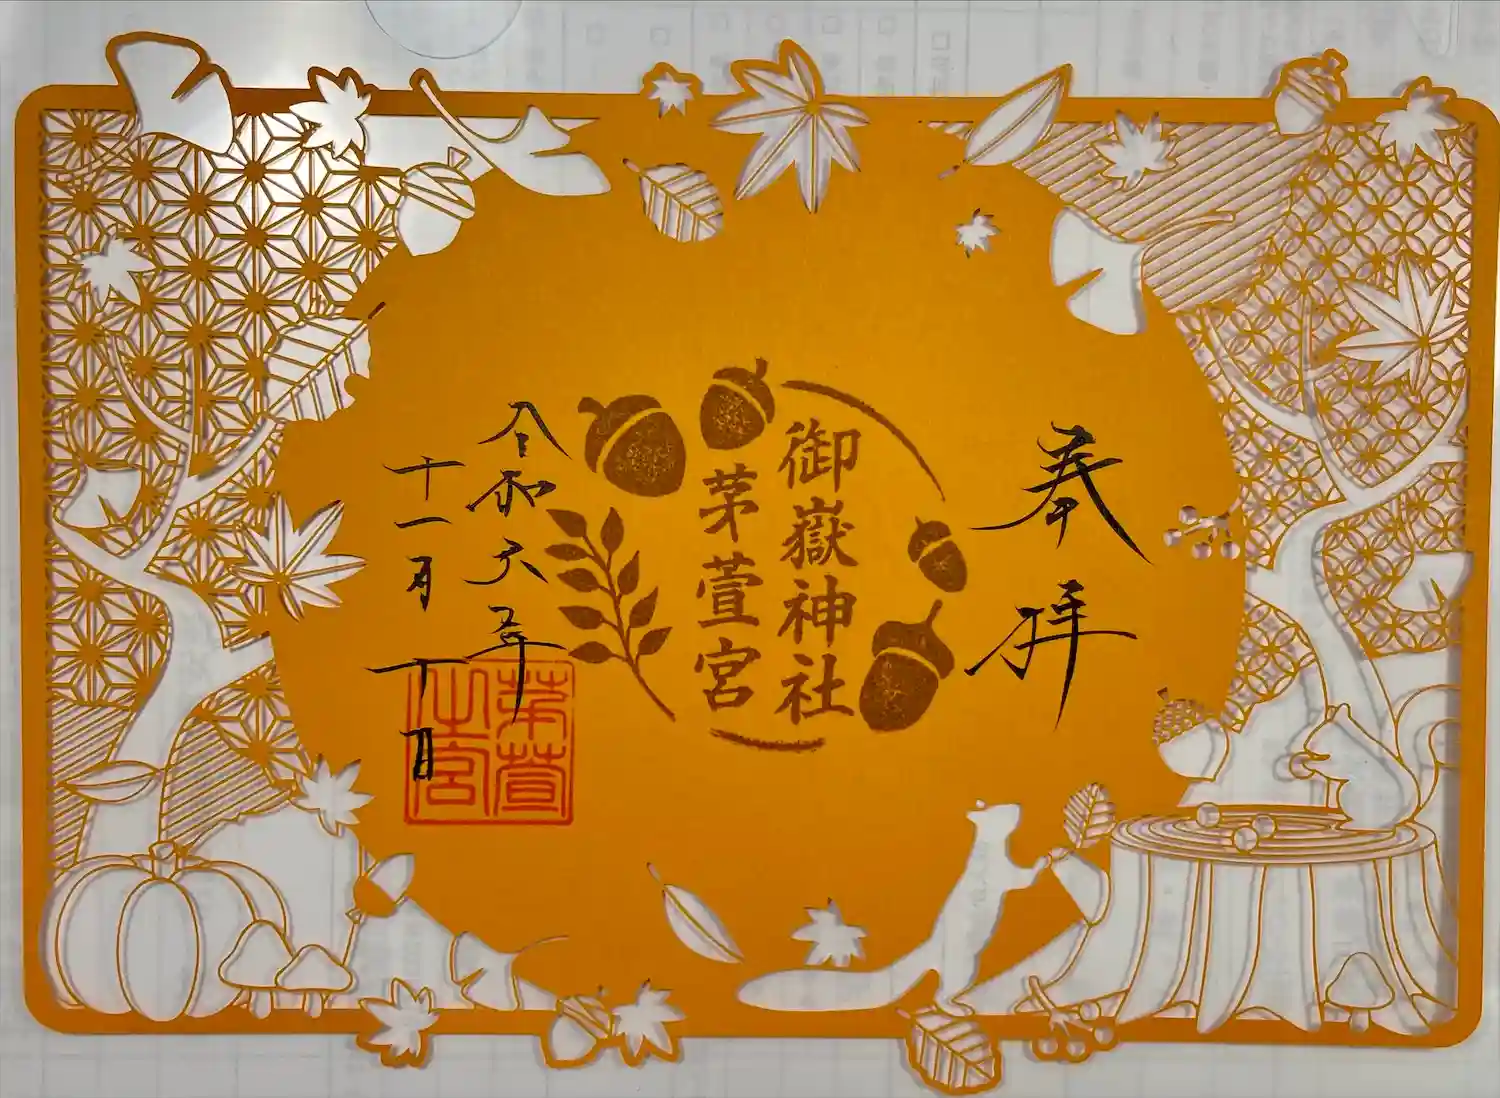 奉拝
御嶽神社
茅萱宮
令和六年
十一月十日
茅萱
之宮